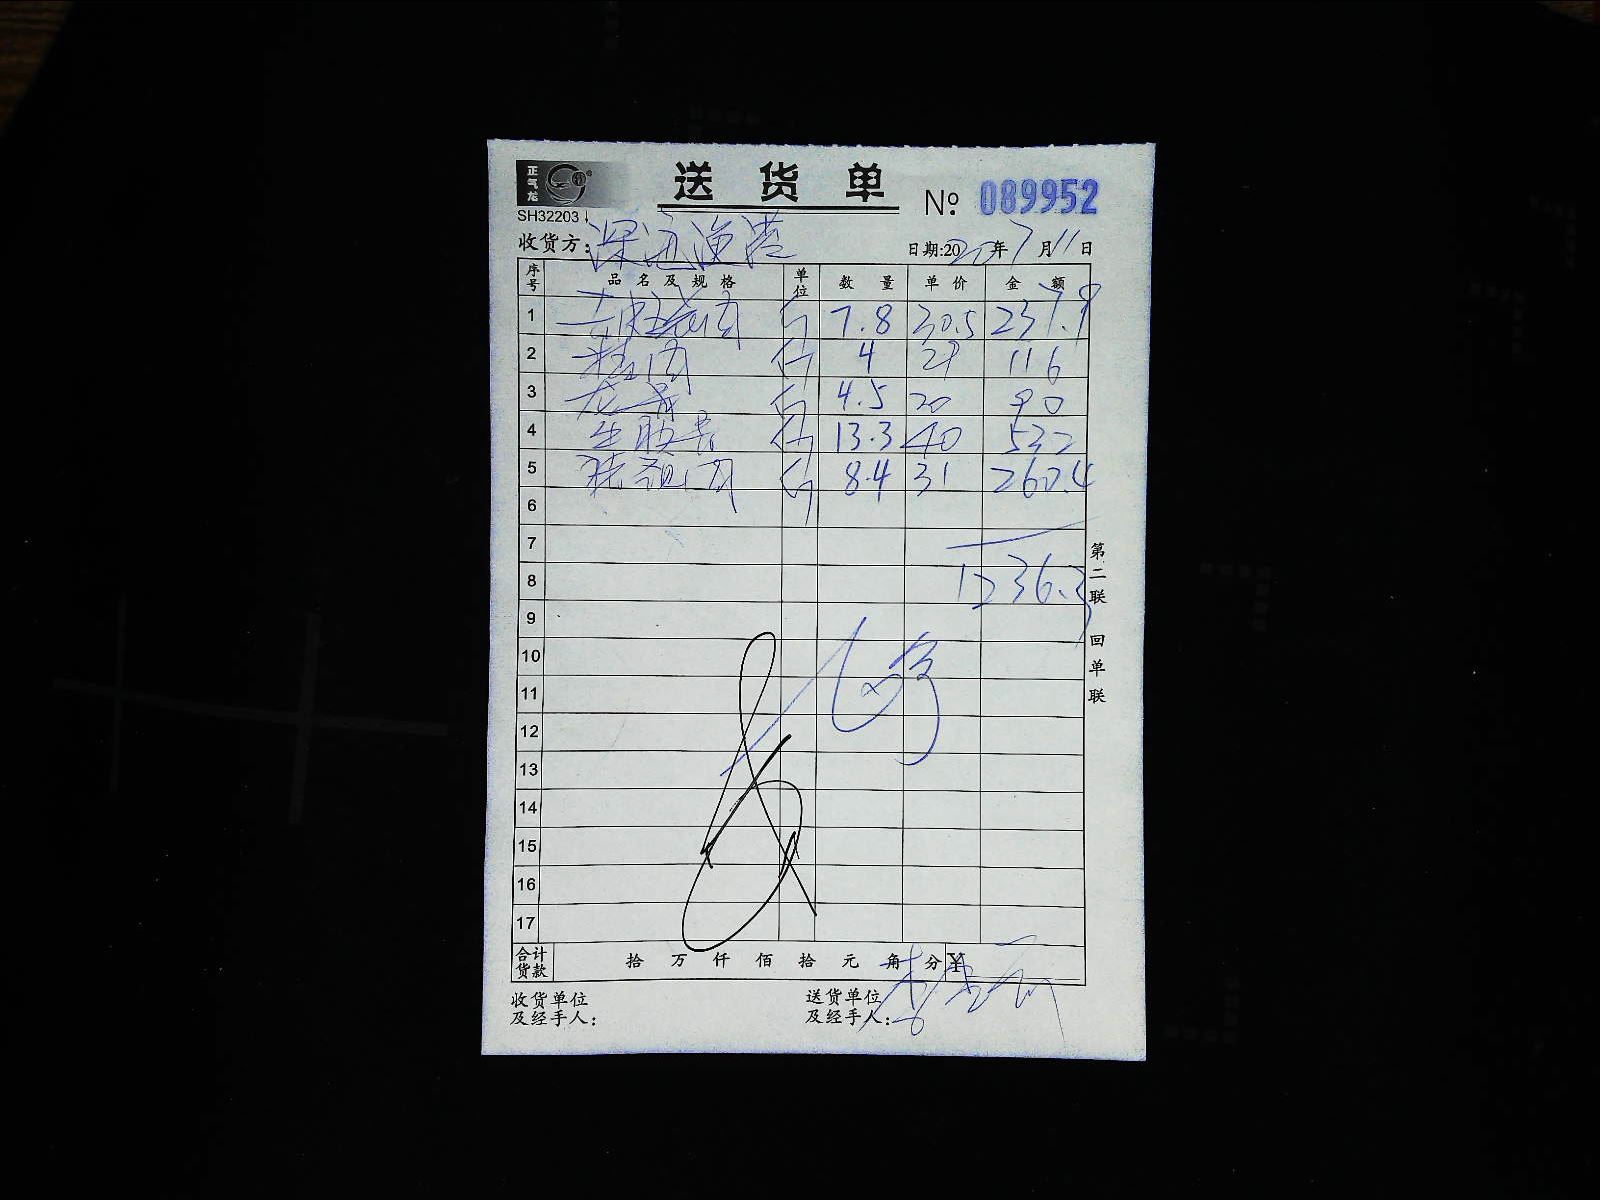 正气龙
送货单
№ 089952
SH32203
收货方:深远渔港
日期:2020年7月11日
序号 品名及规格 单位 数量 单价 金额
1 去皮 肉 斤 7.8 30.5 237.9
2 精肉 斤 4 29 116
3 龙骨 斤 4.5 20 90
4 斤 13.3 40 532
5 肉 斤 8.4 31 260.4
6
7
8 1236.3
9
10
11
12
13
14
15
16
17
合计货款 拾 万 仟 佰 拾 元 角 分 ¥
收货单位及经手人:
送货单位及经手人:
第二联 回单联